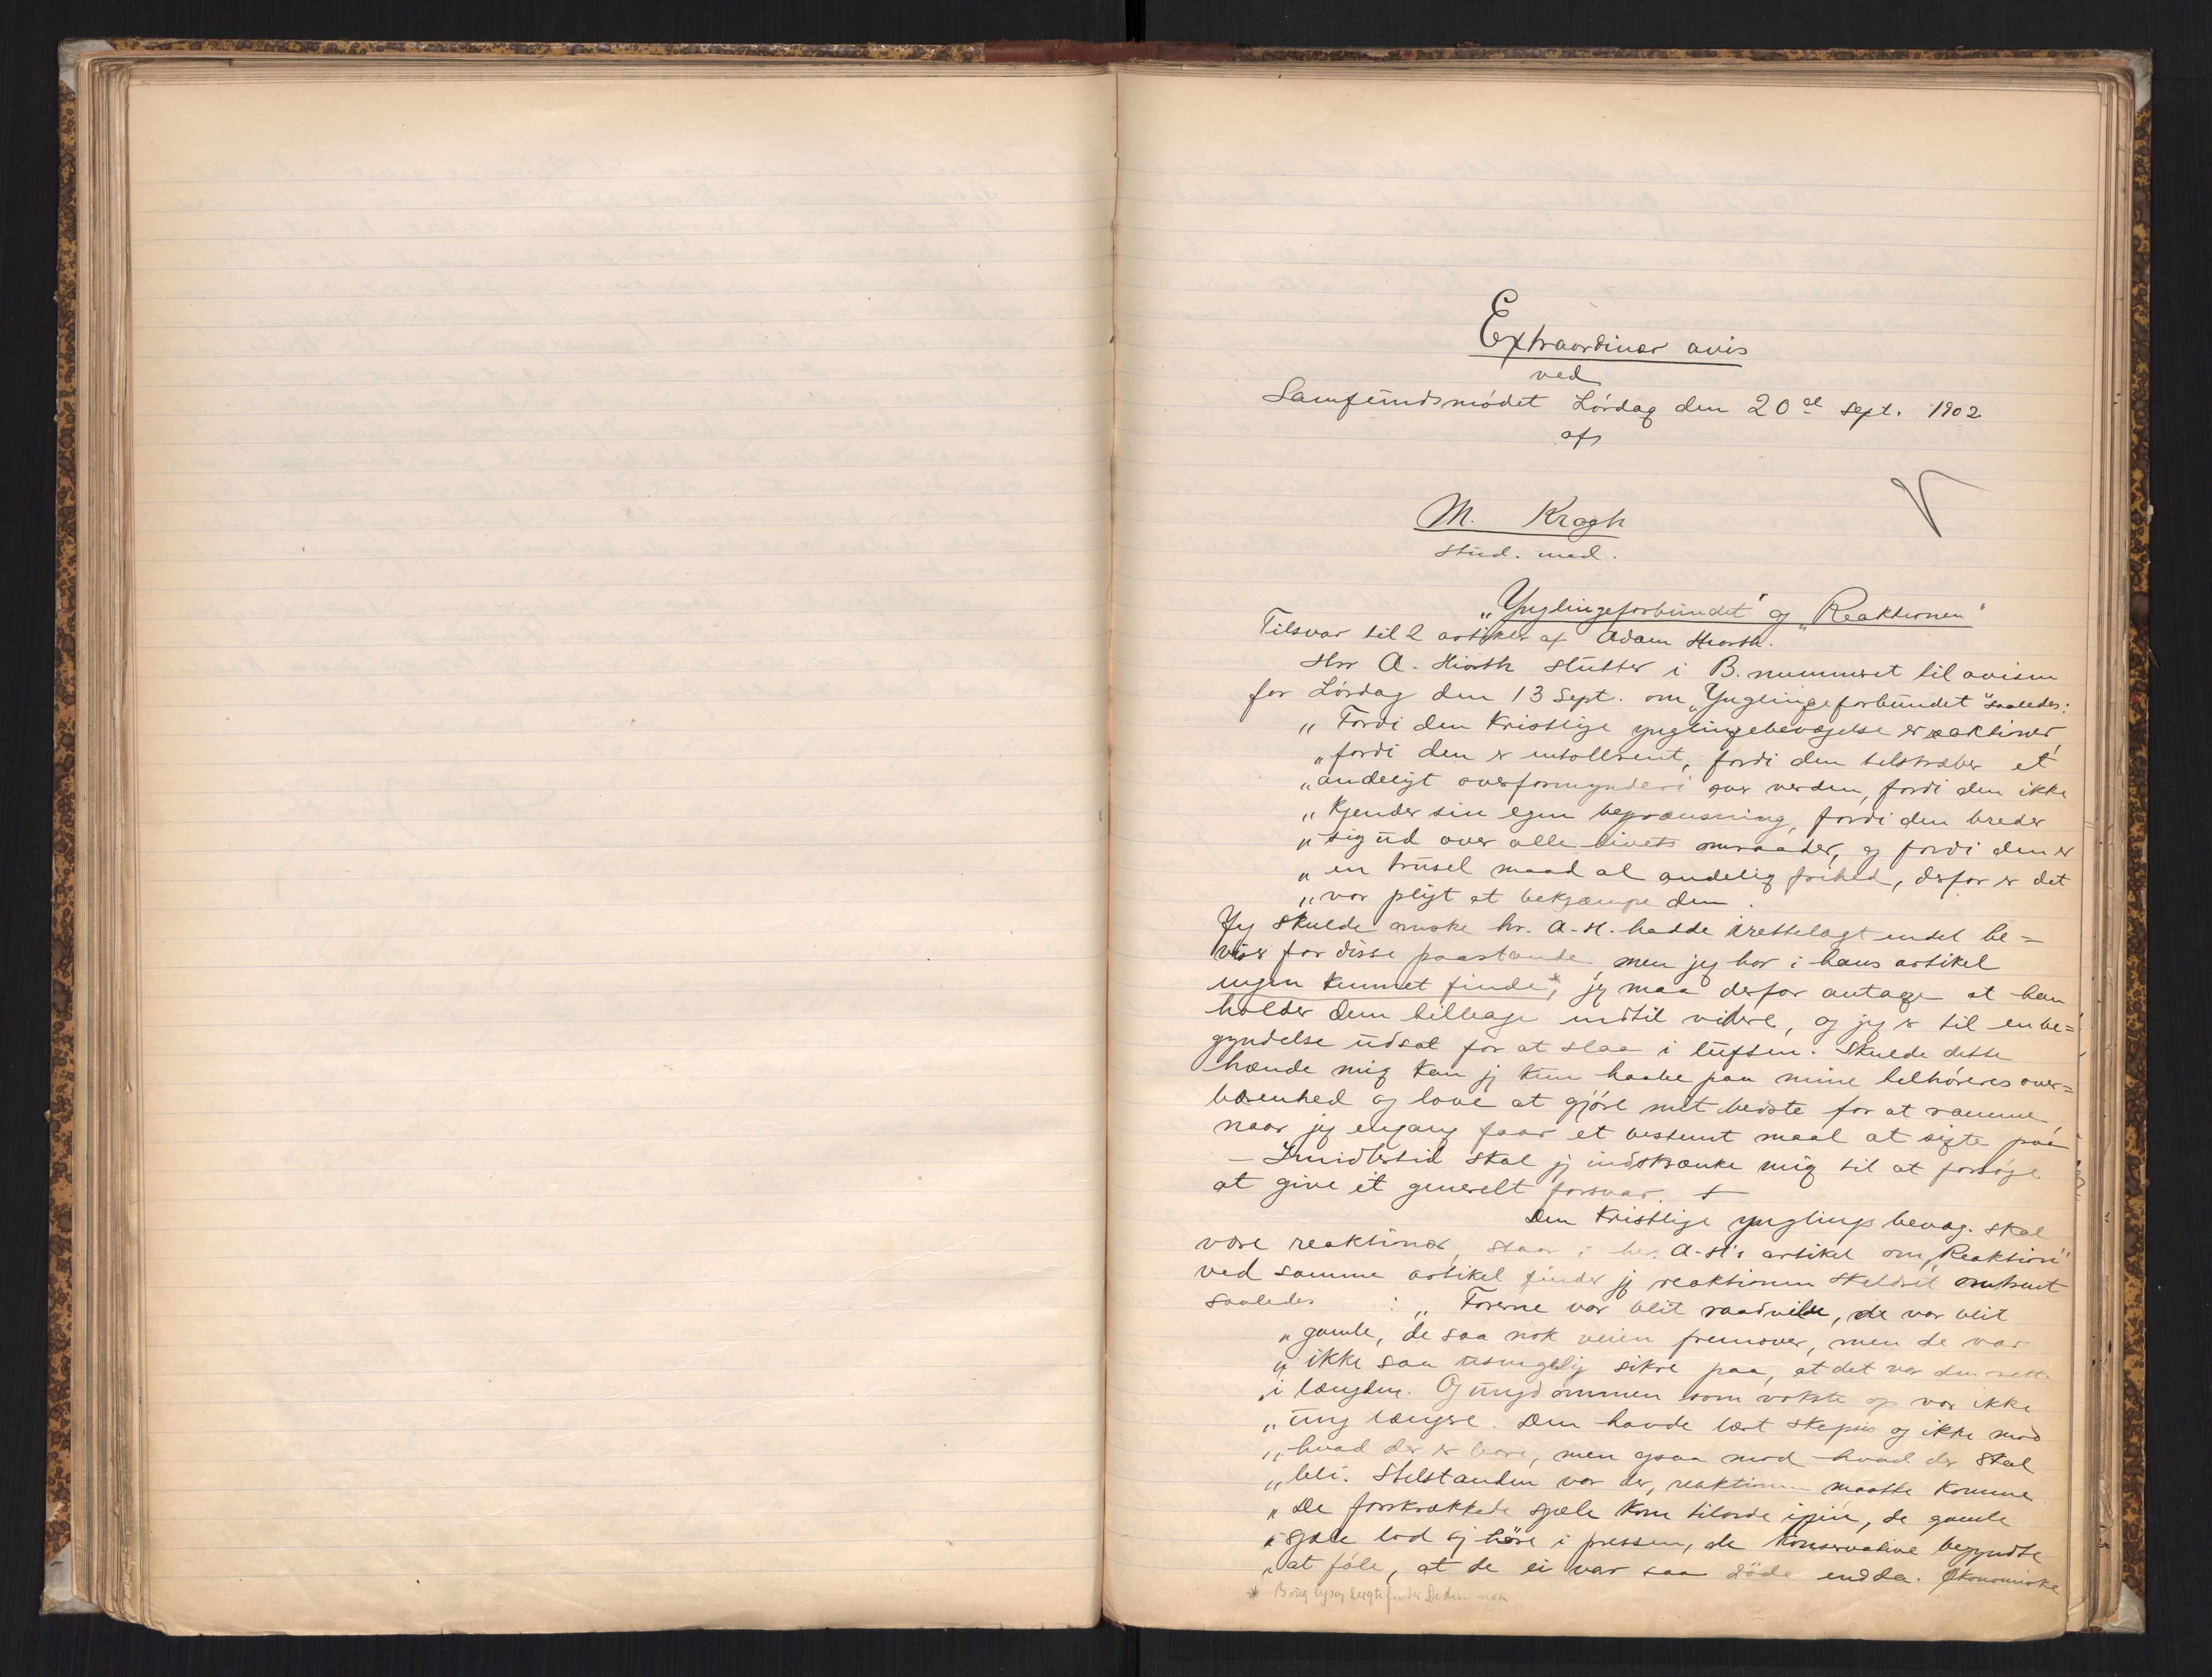 Extraordinær avis
ved
Samfundsmødet Lørdag den 20de Sept. 1902
af
M. Krogh
stud. med.
„Ynglingeforbundet“ og „Reaktionen“
Tilsvar til 2 artikler af Adam Hiorth.
Hr A. Hiorth slutter i B. nummeret til avisen
for Lørdag den 13 Sept. om „Ynglingeforbundet“ saaledes:
„Fordi den Kristlige ynglingebevægelse er reaktionær,
„fordi den er intollerent, fordi den tilstræber et
„andeligt overformynderi over verden, fordi den ikke
„Kjender sin egen begrænsning, fordi den breder
„sig ud over alle livets omraader, og fordi den er
„en trusel maad al andelig frihed, derfor er det
„vor pligt at bekjæmpe den.
Jeg skulde ønske hr. A-H. hadde irettelagt endel be=
viser for disse paastande, men jeg har i hans artikel
ingen kunnet finde*, jeg maa derfor antage at han
holder dem tilbage indtil videre, og jeg er til en be=
gyndelse udsat for at slaa i luften. Skulde dette
hænde mig kan jeg kun haabe paa mine tilhøreres over=
bærenhed og love at gjøre mit bedste for at ramme,
naar jeg engang faar et bestemt maal at sigte paa
– Imidlertid skal jeg indskrænke mig til at forsøge
at give et generelt forsvar. +
Den Kristlige ynglings bevæg. skal
være reaktionær, staar i hr. A-H's artikel om „Reaktion“
ved samme artikel finder jeg reaktionen skildret omtrent
saaledes : „Førerne var blit raadvilde, de var blit
„gamle, de saa nok veien fremover, men de var
„ikke saa usvigelig sikre paa, at det var den rette
„i længden. Og ungdommen som vokste op var ikke
„ung længere. Den havde lært skepsis og ikke mod
„hvad der er bare, men ogsaa mod hvad der skal
„bli. Stilstanden var der, reaktionen maatte komme
„De forskrækkede sjæle kom tilorde igjen, de gamle
„sjæle lod sig høre i pressen, de konservative begyndte
„at føle, at de ei var saa døde endda. Økonomiske
* Brug lys og lygte finder De den nok